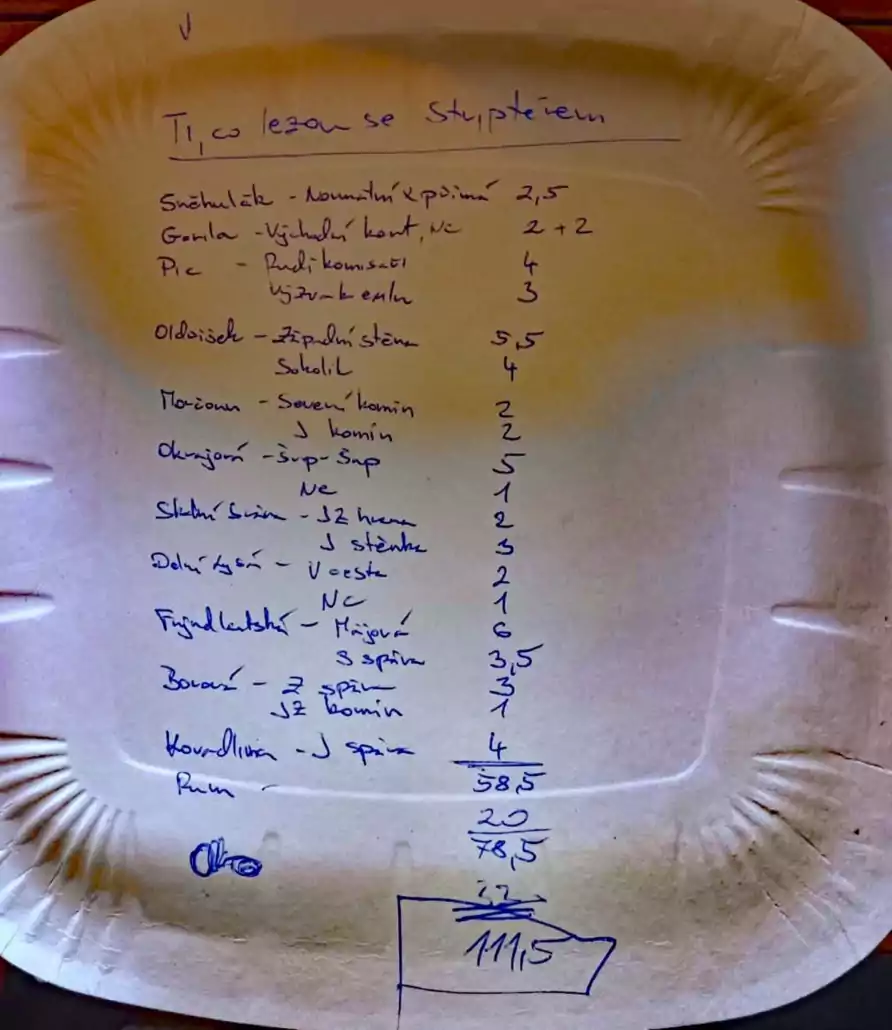 Ti, co lezou se Stupterem
Sněhulák - Normální x přímá 2,5
Gorila - Východní kout, Nc 2 + 2
Pic - Rudí komisaři 4
Výzva k exilu 3
Oldříšek - Západní stěna 5,5
Sokolík 4
- Severní komín 2
J komín 2
Okrajová - Šup-Šup 5
Nc 1
Skalní - JZ hrana 2
J stěnka 3
Dolní Lysá - V cesta 2
NC 1
- Májová 6
S spára 3,5
Borová - Z spára 3
JZ komín 1
- J spára 4
58,5
Rum -
20
78,5
111,5